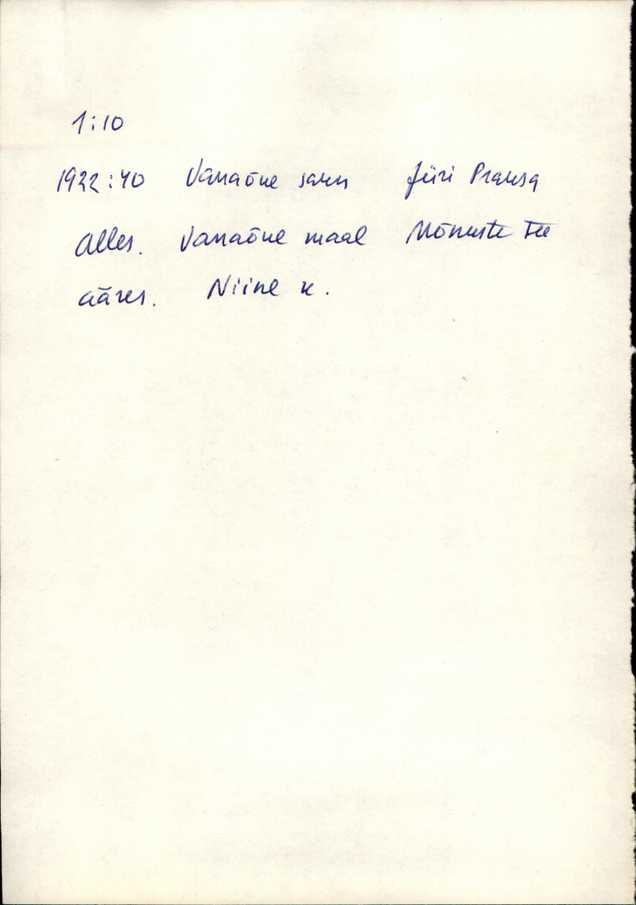 1:10
1922:40 Vanaõue saun Jüri Pransa
Alles. Vanaõue maal Mõniste tee
ääres. Niine k.